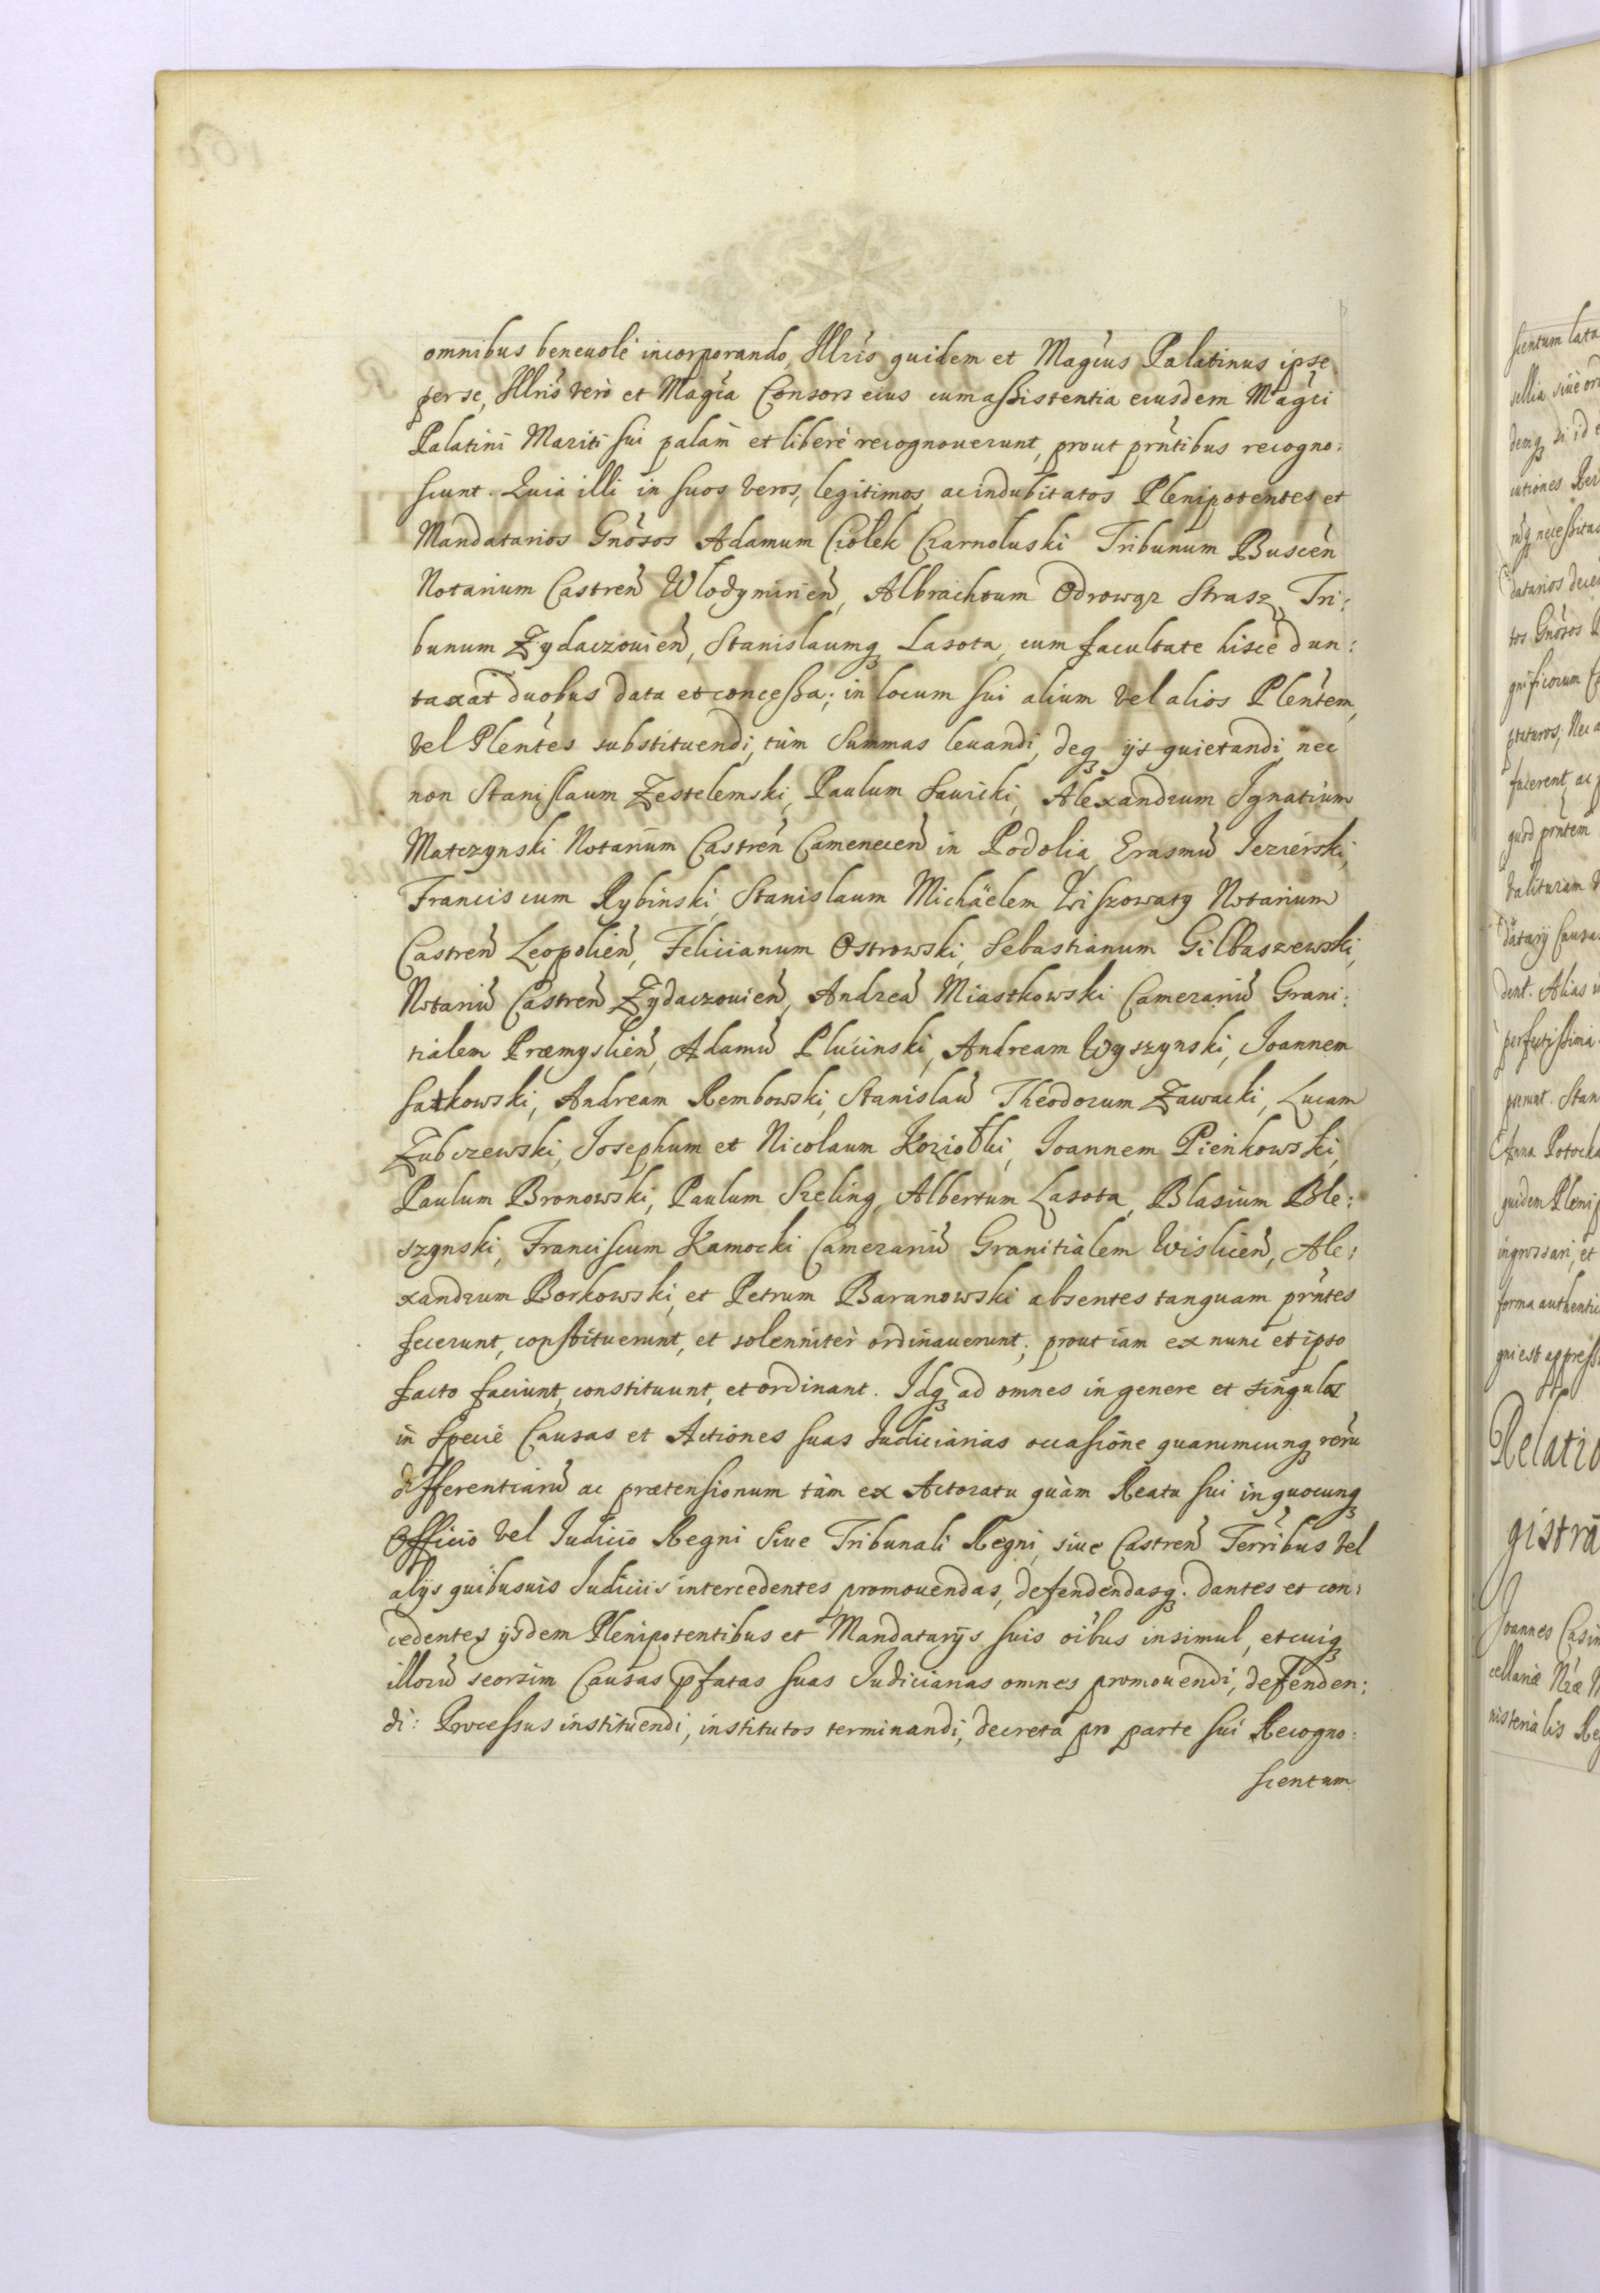 omnibus beneuolè incorporando, Illris quidem et Magcus Palatinus ipse
per se, Illris verò et Magca Consors eius cum assistentia eiusdem Magci
Palatini Mariti sui palàm et liberè recognouerunt, prout prntibus recogno:
scunt. Quia illi in suos veros, legitimos, ac indubitatos Plenipotentes et
Mandatarios Gnosos Adamum Ciołek Czarnoluski Tribunum Buscen
Notarium Castren Wlodymirien, Albrachtum Odrowąz Strasz, Tri:
bunum Zydaczouien, Stanislaumq Lasota, cum facultate hisce dun:
taxat duobus data et concessa; in locum sui alium vel alios Plentem,
vel Plentes substituendi, tùm Summas leuandi, deq ijs quietandi, nec
non Stanislaum Zestelemski, Paulum Sawicki, Alexandrum Ignatium
Matczynski Notarium Castren Camenecen in Podolia, Erasmu Iezierski,
Franciscum Rybinski, Stanislaum Michäelem Wiszowaty Notarium
Castren Leopolien, Felicianum Ostrowski, Sebastianum Gilbaszewski,
Notariu Castren Zydaczouien, Andrea Miastkowski Camerariu Grani:
tialem Præmyslien, Adamu Plucinski, Andream Wyszynski, Ioannem
Satkowski, Andream Rembowski, Stanislau Theodorum Zawacki, Lucam
Zubczewski, Iosephum et Nicolaum Koziołki, Ioannem Pieńkowski,
Paulum Bronowski, Paulum Szeling, Albertum Lasota, Blasium Ble:
szynski, Franciscum Kamocki Camerariu Granitialem Wislicen, Ale:
xandrum Borkowski, et Petrum Baranowski absentes tanquam prntes
fecerunt, constituerunt, et solenniter ordinauerunt; prout iam ex nunc et ipso
facto faciunt, constituunt, et ordinant. Idq ad omnes in genere et singulas
in specie Causas et Actiones suas Iudiciarias occasione quarumcunq reru
differentiaru ac prætensionum tàm ex Actoratu quàm Reatu sui in quocunq
Officio vel Iudicio Regni siue Tribunali Regni, siue Castren Terribus vel
alijs quibusuis Iudicijs intercedentes promouendas, defendendasq. dantes et con:
cedentes ijsdem Plenipotentibus et Mandatarijs suis oibus insimul, et cuiq
illoru seorsim Causas pfatas suas Iudiciarias omnes promouendi, defenden:
di: Processus instituendi, institutos terminandi, decreta pro parte sui Recogno:
scentum